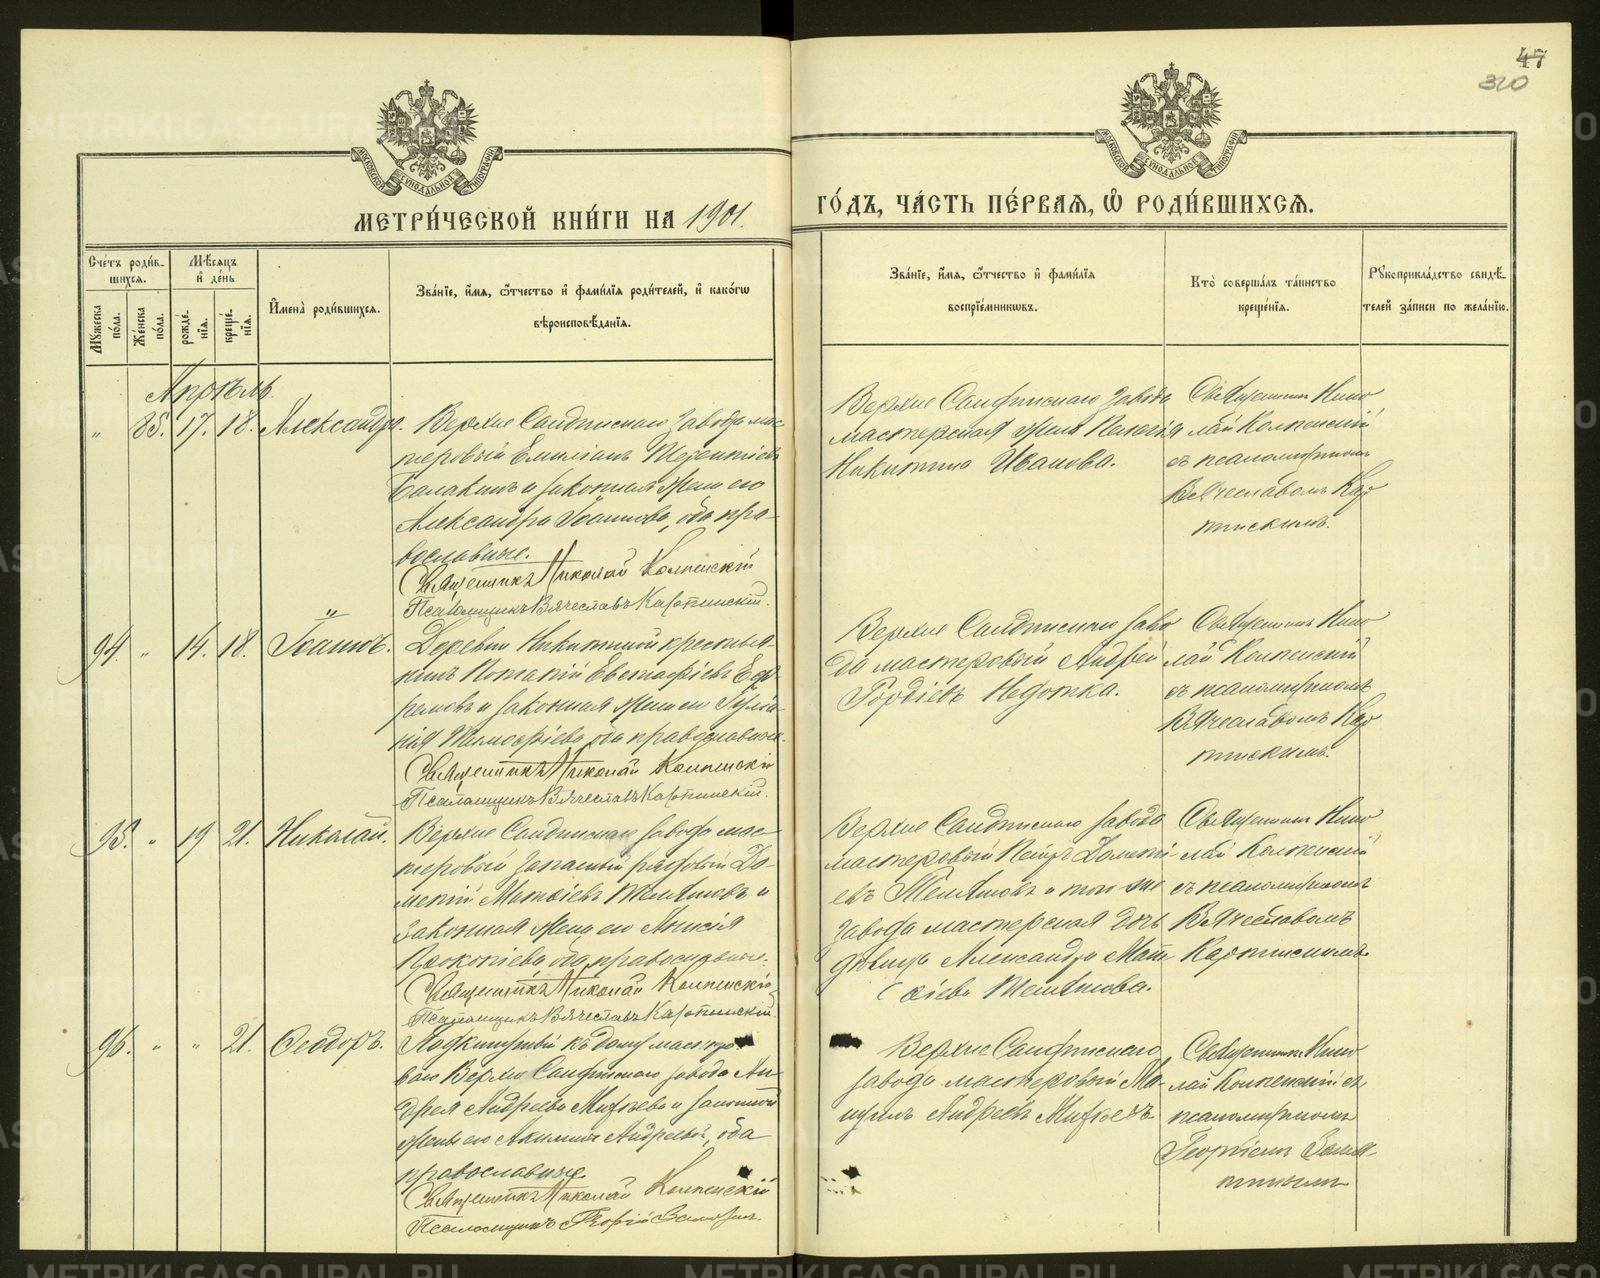 47
320
МЕТРИ́ЧЕСКОЙ КНИ́ГИ НА 1901.
ГО́ДЪ, ЧА́СТЬ ПЕ́РВАЯ, Ѡ҆ РОДИ́ВШИХСЯ.
Сче́тъ роди́в-
шихся.
Мѣ́сяцъ
и҆ де́нь
Мꙋ́жеска
по́ла.
Же́нска
по́ла.
рожде́-
нїя.
креще́-
нїя.
И҆мена̀ роди́вшихся.
Зва́нїе, и҆́мя, ѻ҆́тчество и҆ фами́лїя роди́телей, и҆ како́гѡ
вѣроисповѣ́данїя.
Зва́нїе, и҆́мя, ѻ҆́тчество и҆ фами́лїя
воспрїе́мникѡвъ.
Кто̀ соверша́лъ та́инство
креще́нїя.
Рꙋкоприкла́дство свидѣ́-
телей за́писи по жела́нїю.
Апрѣль
" 85. 17. 18. Александра. Верхне Салдинскаго завода мас-
теровый Емилiанъ Терентiевъ
Балакинъ и законная жена его
Александра Iоаннова, оба пра-
вославные.
Священникъ Николай Колпенскiй
Псаломщикъ Вячеславъ Карпинскiй.
Верхне Салдинскаго завода
мастерская жена Пелагiя
Никитина Иванова.
Священникъ Нико
лай Колпенскiй
съ псаломщикомъ
Вячеславомъ Кар
пинскимъ.
"
94. " 14. 18. Iоаннъ. Деревни Никитиной крестья-
нинъ Потапiй Евстафiевъ Еф
ремовъ и законная жена его Iулiа-
нiя Тимофiева оба православные.
Священникъ Николай Колпенскiй
Псаломщикъ Вячеславъ Карпинскiй.
Верхне Салдинскаго заво
да мастеровый Андрей
Гордiевъ
Священникъ Нико
лай Колпенскiй
съ псаломщикомъ
Вячеславомъ Кар
пинскимъ.
95. " 19 21. Николай. Верхне Салдинскаго завода мас-
теровый запасный рядовый До-
метiй Матфiевъ и
законная жена его Анисiя
Прокопiева оба православные.
Священникъ Николай Колпенскiй
Псаломщикъ Вячеславъ Карпинскiй
Верхне Салдинскаго завода
мастеровый Петръ Дометi
евъ и того-же
завода мастерская дочь
дѣвица Александра Мат
фiева
Священникъ Нико
лай Колпенскiй
съ псаломщикомъ
Вячеславомъ
Карпинскимъ.
96. " " 21. Ѳеодоръ. Подкинутый къ дому мастеро-
ваго Верхне Салдинскаго завода Ан-
дрея Андреева и законной
жены его Андреевой, оба
православные
Священникъ Николай Колпенскiй
Псаломщикъ Георгiй
Верхне Салдинскаго
завода мастеровый
Андреевъ
Священникъ Нико
лай Колпенскiй съ
псаломщикомъ
Георгiемъ